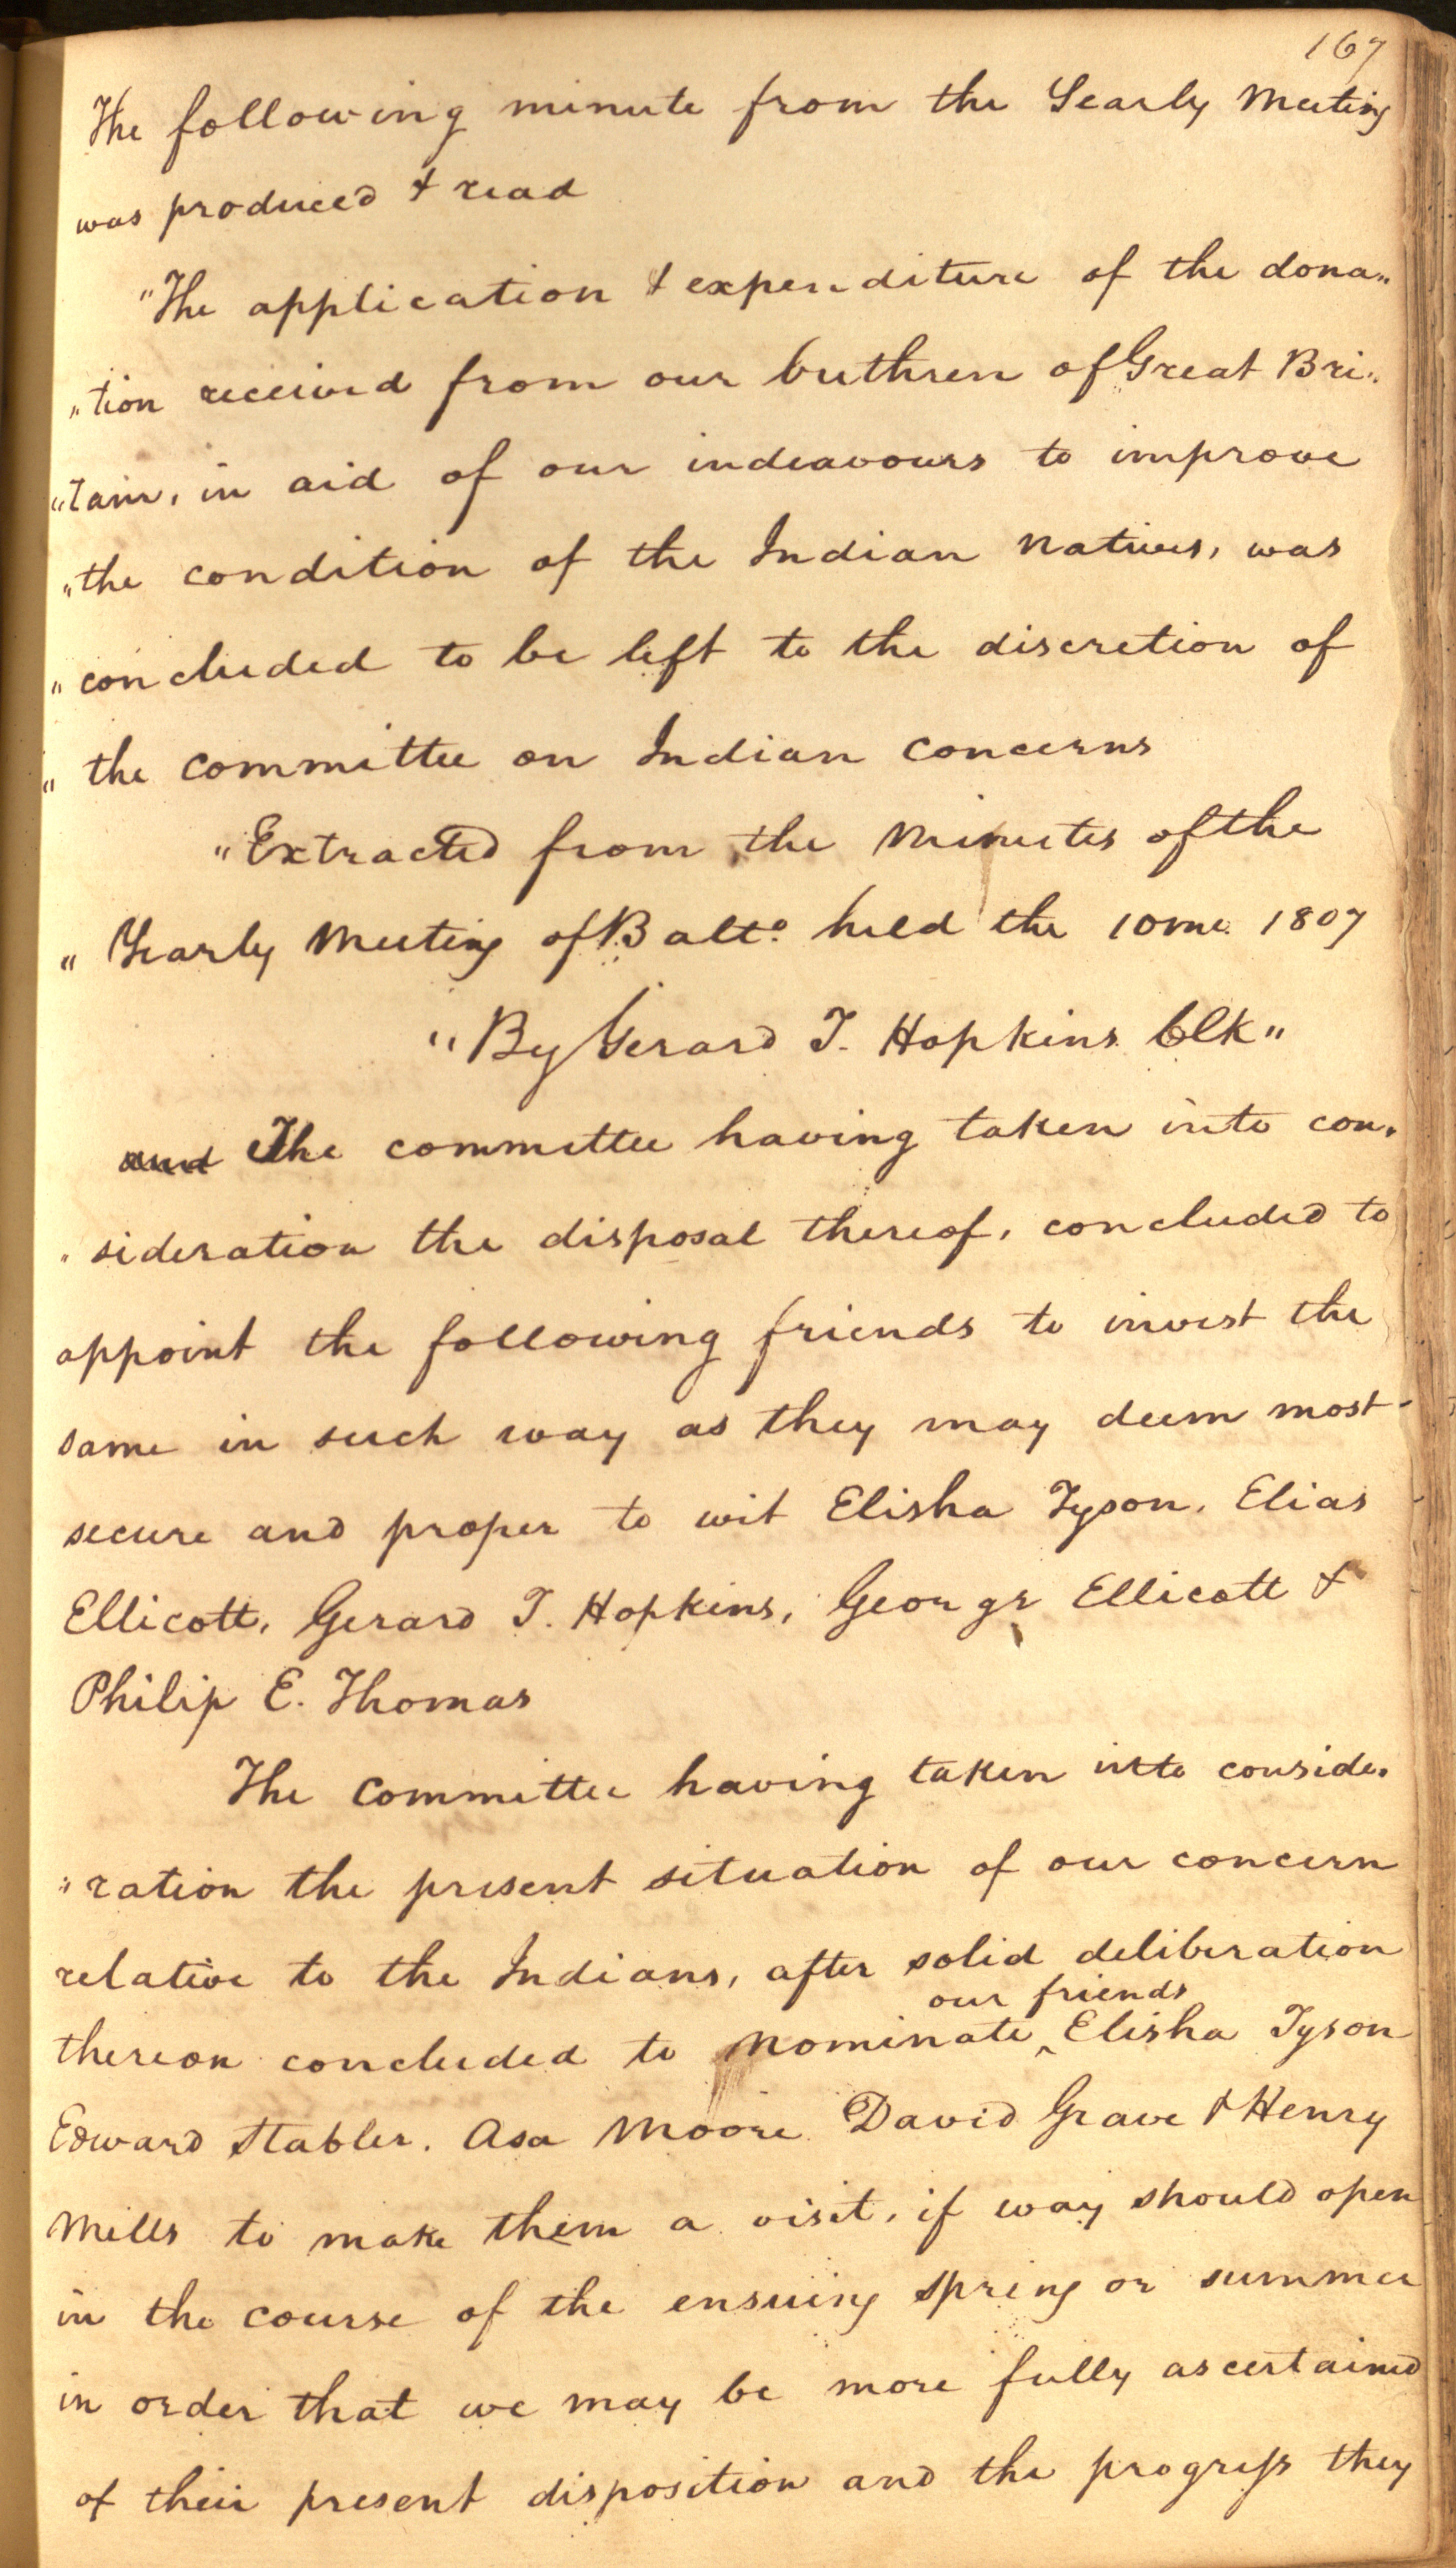 167
The following minute from the Yearly Meeting
was produced & read
"The application & expenditure of the dona„
„tion received from our brethren of Great Bri„
„tain, in aid of our indeavours to improve
„the condition of the Indian natives, was
„concluded to be left to the discretion of
„ the committee on Indian concerns
„Extracted from the minutes of the
„ Yearly Meeting of Balto. held the 10mo. 1807
"By Gerard T. Hopkins Clk"
and The committee having taken into con„
„sideration the disposal thereof, concluded to
appoint the following friends to invest the
same in such way as they may deem most
secure and proper to wit Elisha Tyson, Elias
Ellicott, Gerard T. Hopkins, George Ellicott &
Philip E. Thomas
The committee having taken into conside„
„ration the present situation of our concern
relative to the Indians, after solid deliberation
our friends
thereon concluded to nominate ‸ Elisha Tyson
Edward Stabler. Asa Moore David Grave & Henry
Mills to make them a visit, if way should open
in the course of the ensuing spring or summer
in order that we may be more fully ascertained
of their present disposition and the progress they